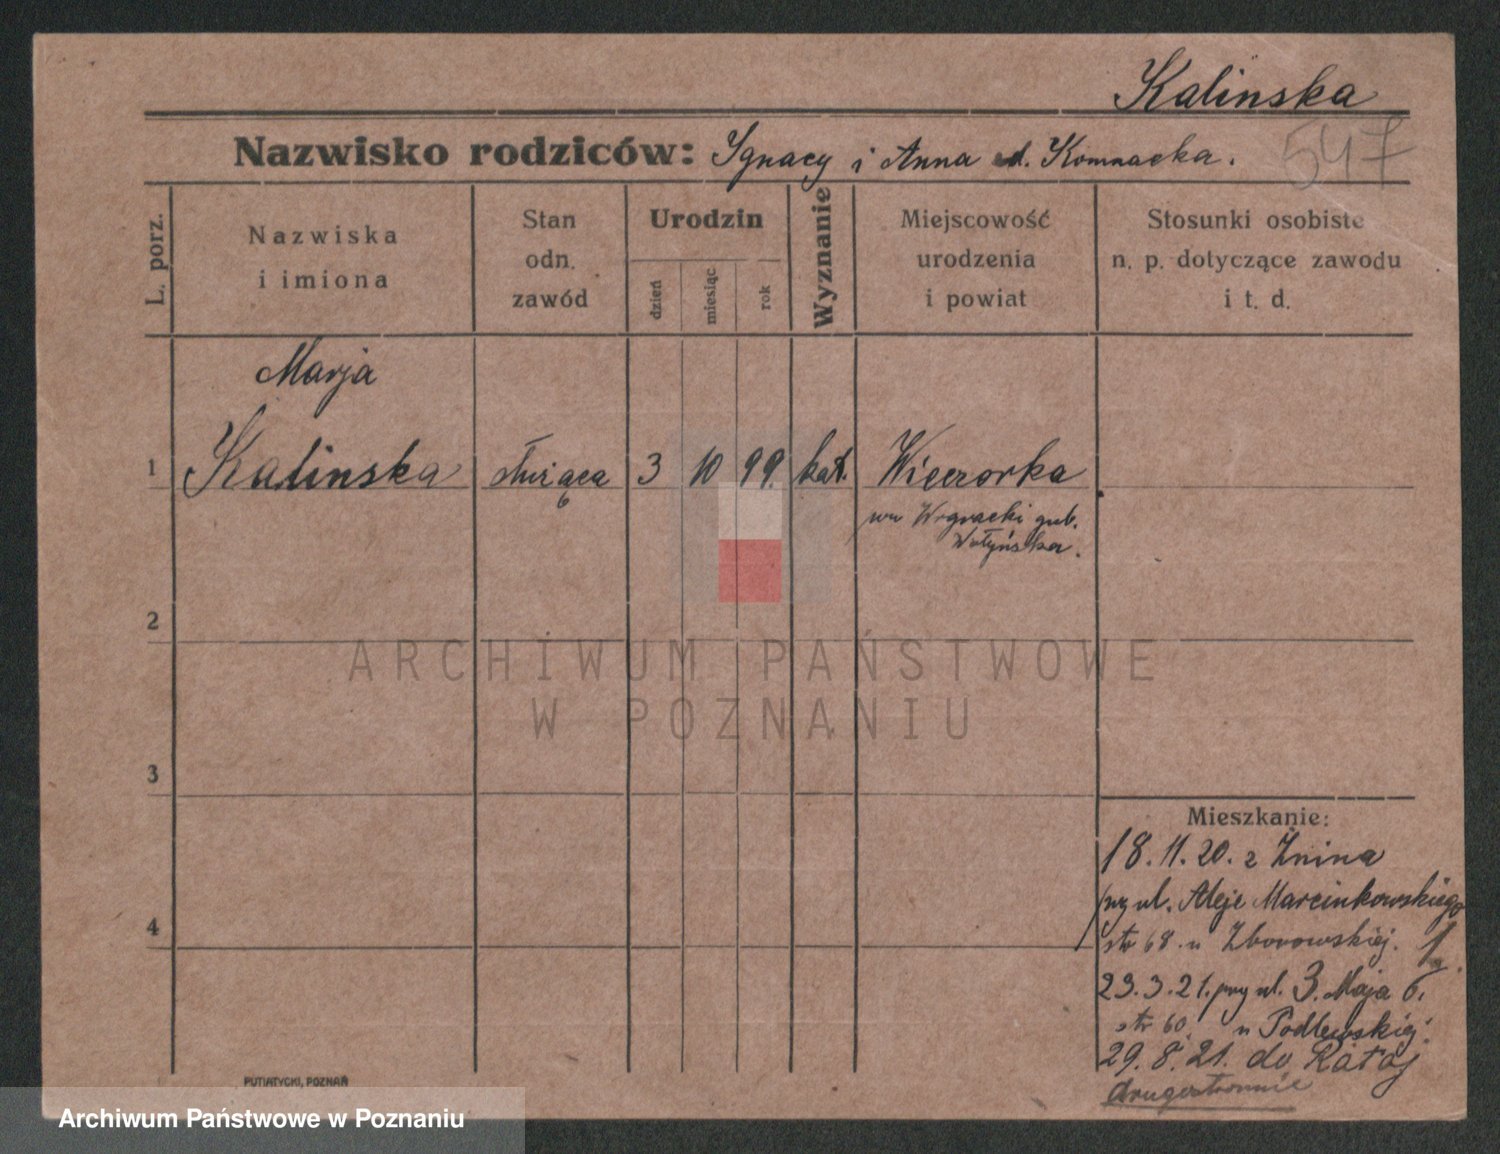 Kalinska
Nazwisko rodziców: Ignacy i Anna d. Komnacka.
547
L. porz.
Nazwiska
i imiona
Stan
odn.
zawód
Urodzin
dzień
miesiąc
rok
Wyznanie
Miejscowość
urodzenia
i powiat
Stosunki osobiste
n. p. dotyczące zawodu
i t. d.
Marja
1 Kalinska służąca 3 10 99. kat. Wieczorka
gub.
Wołyńska.
2
ARCHIWUM PAŃSTWOWE
W POZNANIU
3
4
Mieszkanie:
18.11.20. z Żnina
przy ul. Aleje Marcinkowskiego
str 68. u Zborowskiej. 1.
23.3.21. przy ul. 3. Maja 6,
str 60. u Podlewskiej.
29.8.21. do Rataj
drugostronnie
PUTIATYCKI, POZNAŃ
Archiwum Państwowe w Poznaniu